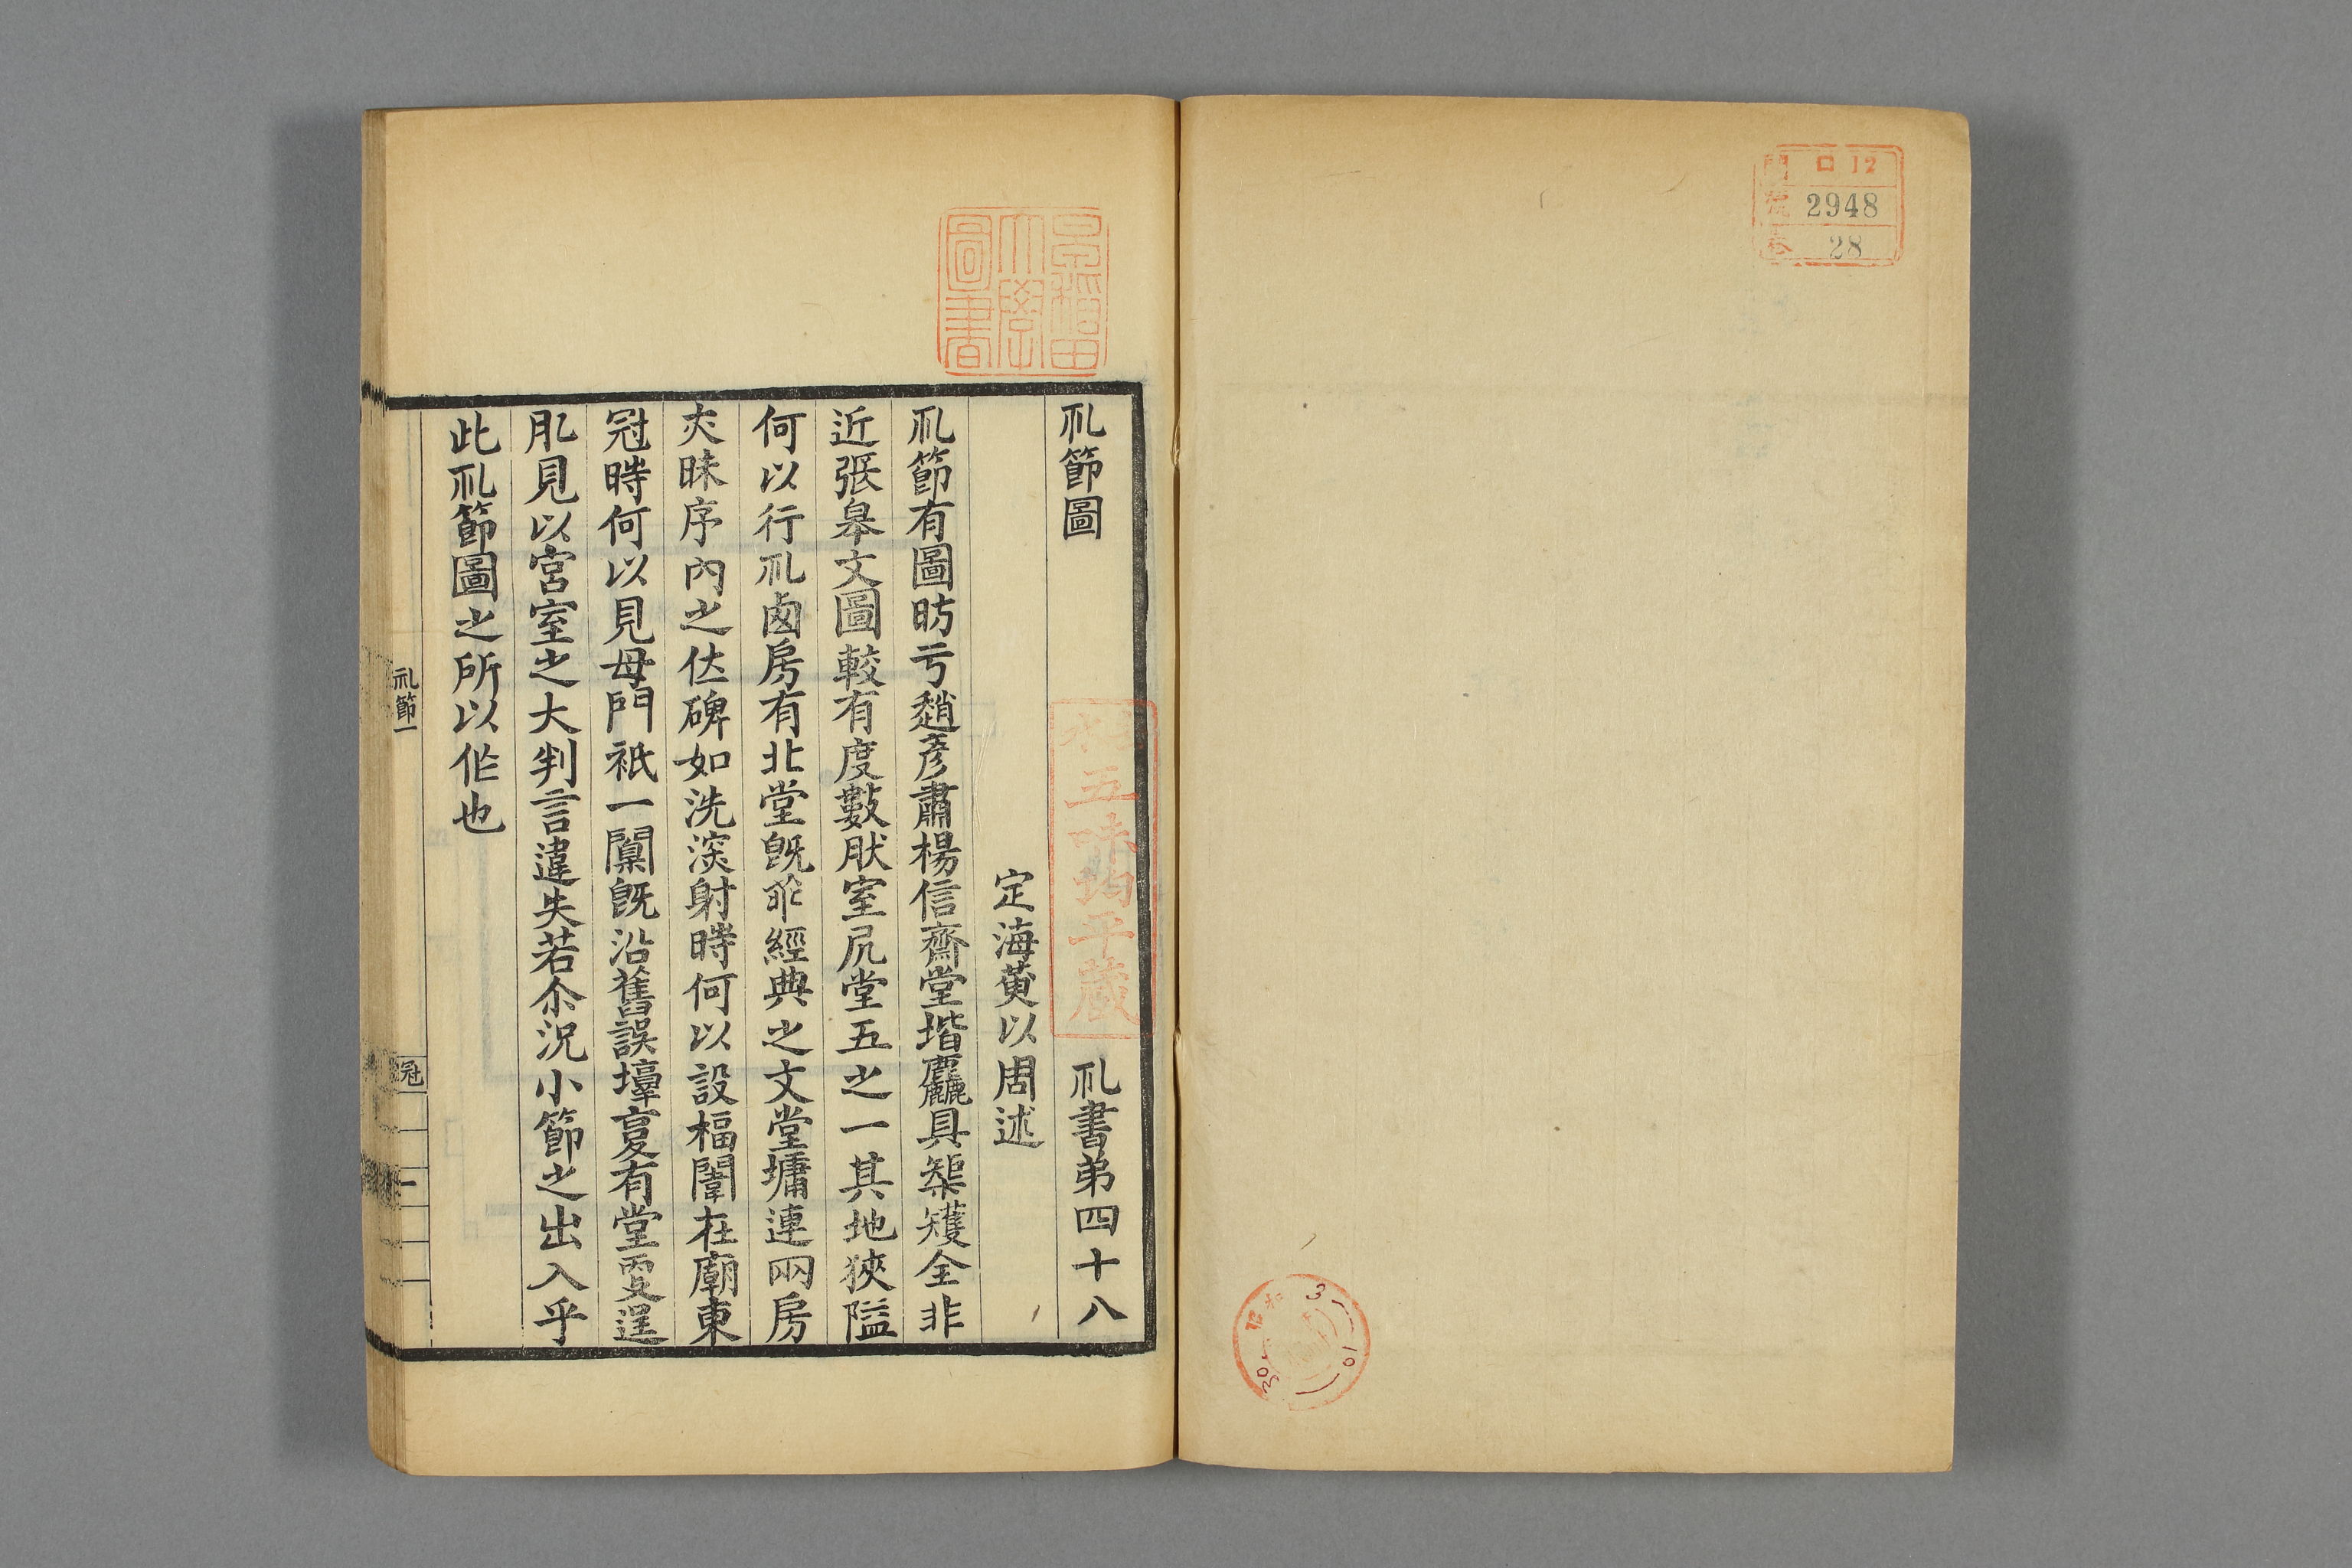 門 口12
號 2948
巻 28
昭和
30
3
10
早稲田
大學
圖書
五味均平蔵
礼節圖 礼書弟四十八
定海黄以周述
礼節有圖昉亏趙彦肅楊信齋堂堦麤具榘矱全非
近張皋文圖較有度數肰室凥堂五之一其地狹隘
何以行礼卤房有北堂旣乖經典之文堂墉連兩房
夾昧序內之佐碑如洗深射時何以設楅闈在廟東
冠時何以見母門祇一闑旣沿舊誤壇㝔有堂叓逞
肊見以宮室之大判言違失若尒況小節之出入乎
此礼節圖之所以作也
礼節一
冠
一